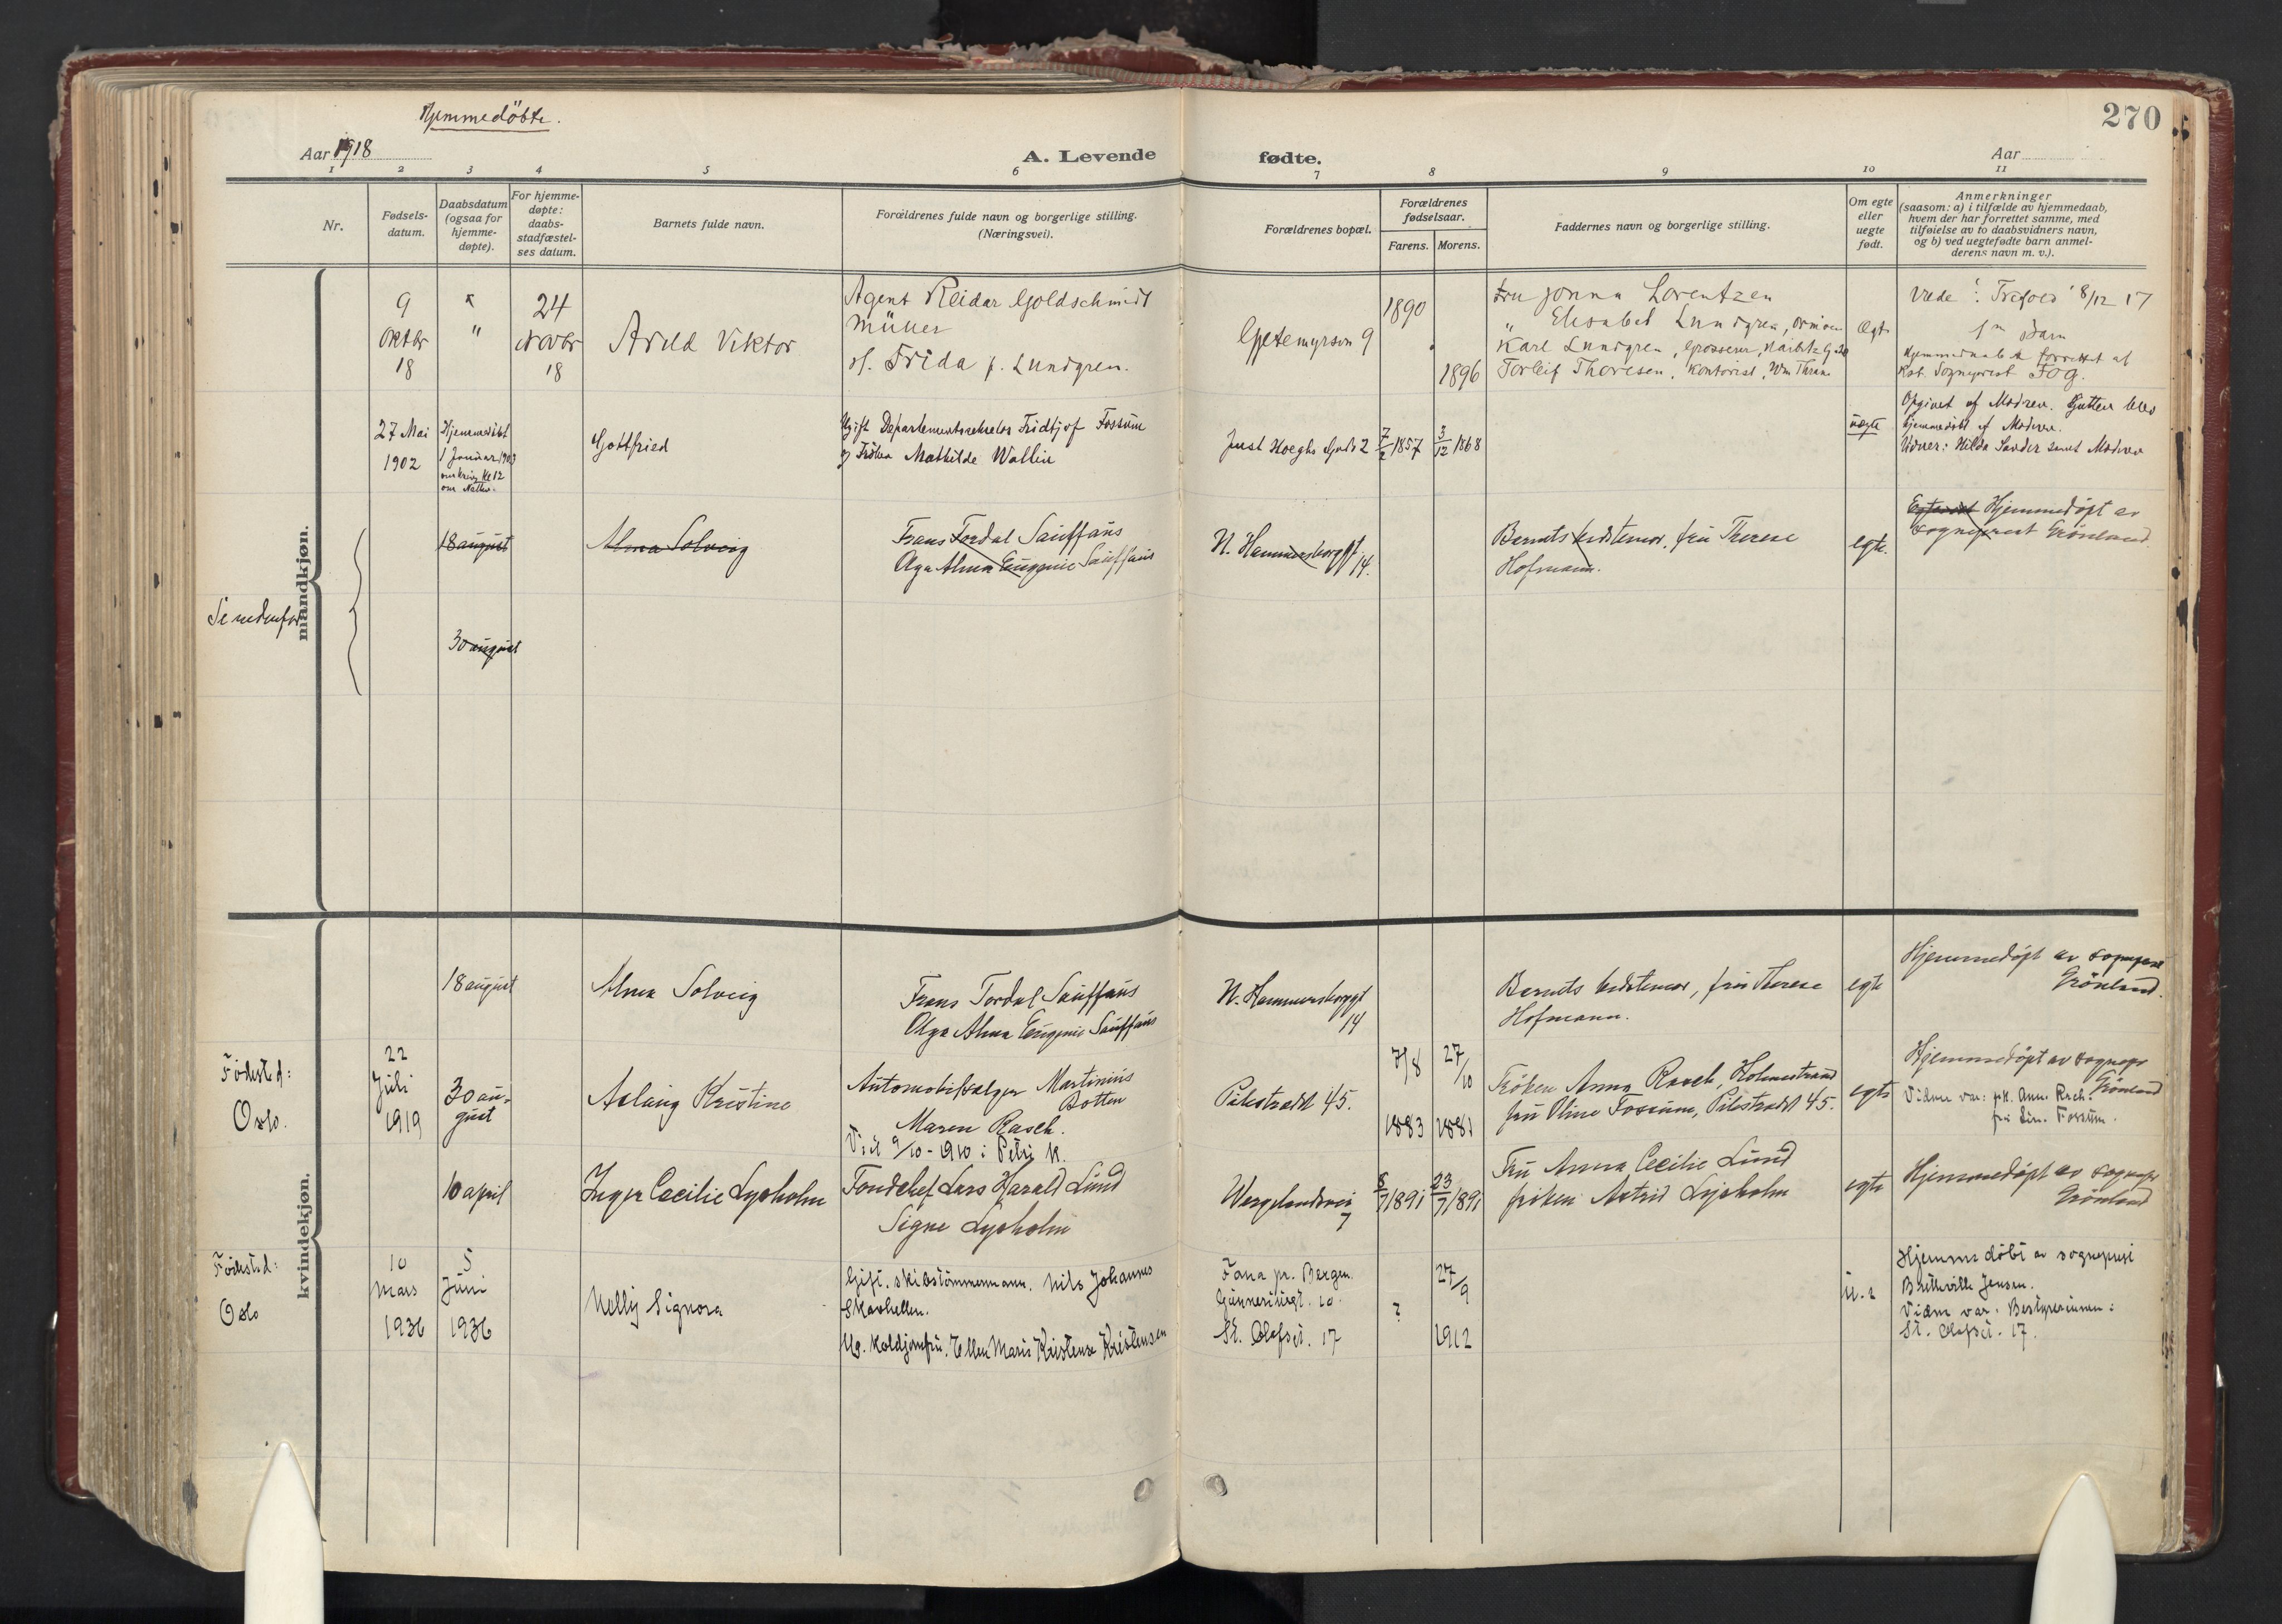 Hjemmedöbte.
270
Aar 1918
A. Levende fødte.
Aar
1 2 3 4 5 6 7 8 9 10 11
Nr.
Fødsels-
datum.
Daabsdatum
(ogsaa for
hjemme-
døpte).
For hjemme-
døpte:
daabs-
stadfæstel-
ses datum.
Barnets fulde navn.
Forældrenes fulde navn og borgerlige stilling.
(Næringsvei).
Forældrenes bopæl.
Forældrenes
fødselsaar.
Farens. Morens.
Faddernes navn og borgerlige stilling.
Om egte
eller
uegte
født.
Anmerkninger
(saasom: a) i tilfælde av hjemmedaab,
hvem der har forrettet samme, med
tilføielse av to daabsvidners navn,
og b) ved uegtefødte barn anmel-
derens navn m. v.).
mandkjøn.
9
Oktbr
18
"
24
Novbr
18
Arild Viktor
Agent Reidar Goldschmidt
Müller
Frida f. Lundgren.
Gjetemyrsvn 9
1890
1896
Fru Jonna Lorentzen
" Elisabet Lundgren,
Karl Lundgren, Grosserer,
Torleif Thoresen, Kontorist, Wm Thrane
Egte
Viede i Trefold 8/12 17
1ste Barn
Hjemmedaab forrettet af
Kat. Sogneprest Fog.
27 Mai
1902
Hjemmedöbt
1 Januar 1903
omkring Kl 12
om Natten.
Gottfried
Ugift Departementssekretær Fridtjof Fossum
og Fröken Mathilde Wallin
Just Hoeghs Gade 2
7/2 1857
3/12 1868
uægte
Opgivet af Moderen. Gutten blev
hjemmedöbt af Moderen.
Vidner: Hilda Sander samt Moderen
18 august
Alma Solveig
Frans Tordal Sauffaus
Olga Alma Eugenie Sauffaus
N. Hammersborggt
14.
Barnets bedstemor, fru Therese
Hofmann.
egte.
Hjemmedøpt av
sogneprest Grönland.
Se nedenfor
30 august
kvindekjøn.
18 august
Alma Solveig
Frans Tordal Sauffaus
Olga Alma Eugenie Sauffaus
N. Hammersborggt
14
Barnets bedstemor, fru Therese
Hofmann.
egte
Hjemmedøpt av sognepr
Grönland.
Födested:
Oslo.
22
Juli
1919
30 au-
gust
Aslaug Kristine
Automobilsælger Martinius
Botten
Maren Rasch.
Viet 9/10 - 1910 i Petri K.
Pilestrædet 45.
7/8
1883
27/10
1881
Fröken Anna Rasch, Holmestrand
fru Oline Fossum, Pilestrædet 45.
egte
Hjemmedøpt av sognepr
Grönland
Vidner var: frk. Anna Rasch.
fru Lin. Fossum.
10 april
Inger Cecilie Lysholm
Fondchef Lars Harald Lund
Signe Lysholm
Wergelandsvei
7
8/7 1891
23/7 1891
Fru Anna Cecilie Lund
fröken Astrid Lysholm
egte
Hjemmedøpt av sognepr
Grönland
Födested:
Oslo
10
Mars
1936
5
Juni
1936
Nelly Signora
Gift. skibstömmermann. Nils Johannes
Skavhellen.
Ug. koldjomfru. Ellen Marie Kristense Kristensen
Fana pr. Bergen.
Gunnerusgt. 20.
St. Olafsgt. 17
?
27/9
1912
u.e
Hjemmedöbt av sogneprest
Bretteville Jensen.
Vidne var: Bestyrerinnen:
St. Olafsgt. 17.